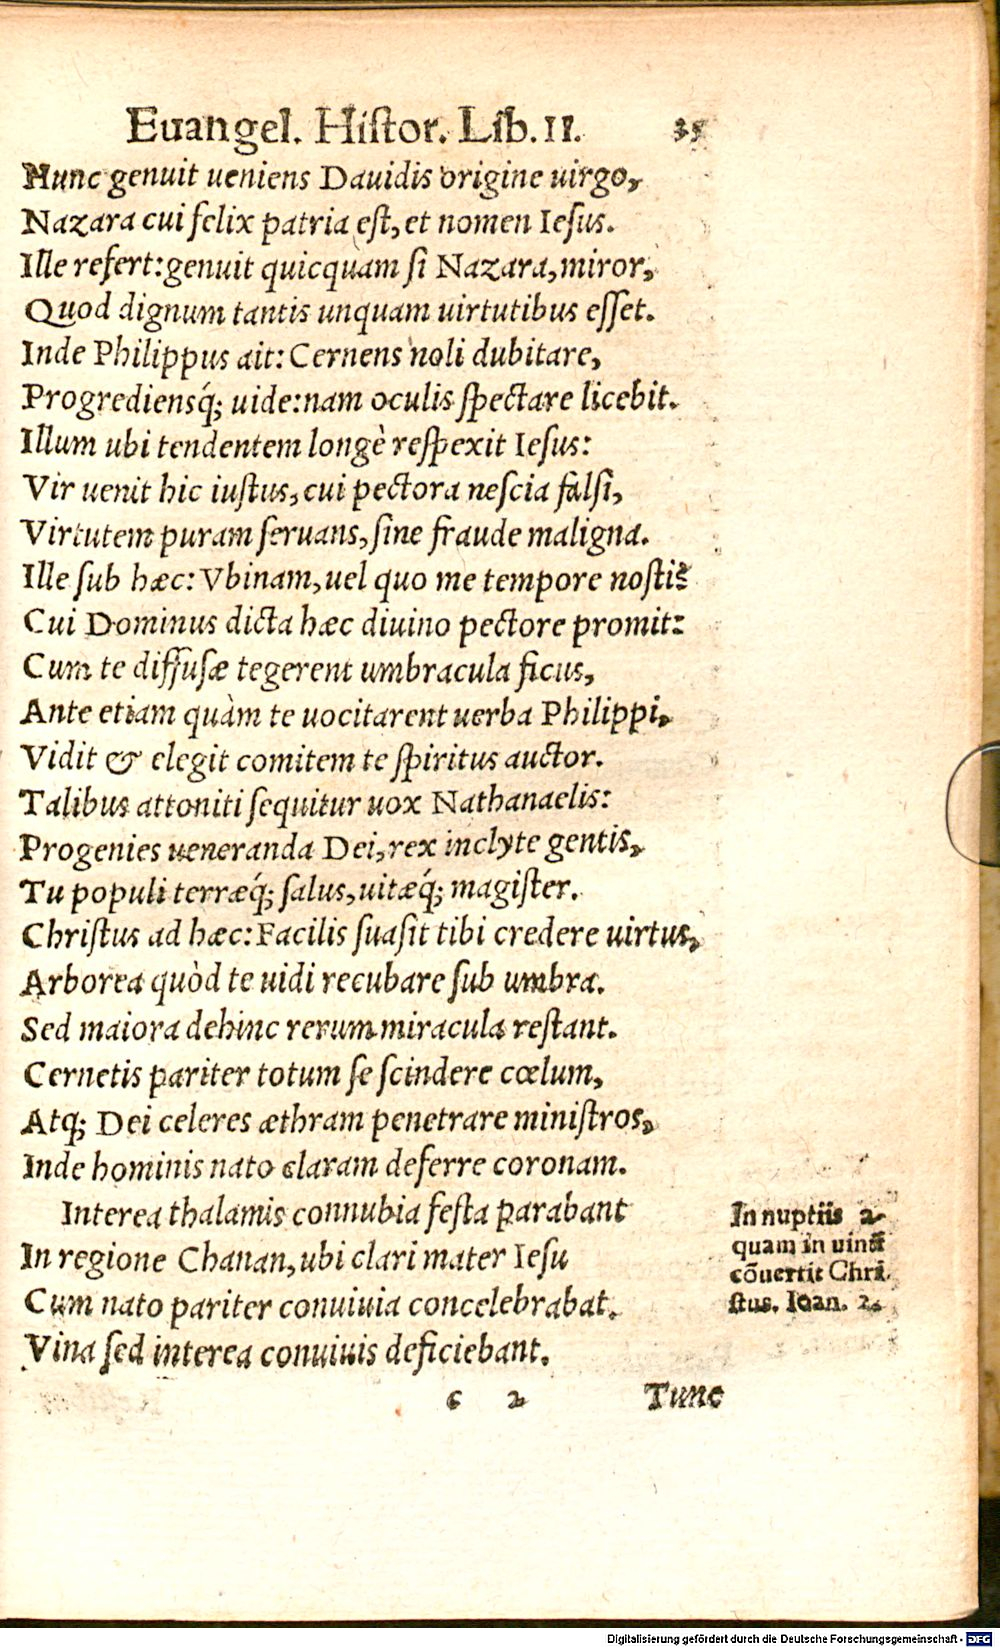 Euangel. Histor. Lib. II. 35
Hunc genuit ueniens Dauidis origine uirgo,
Nazara cui felix patria est, et nomen Iesus.
Ille refert: genuit quicquam si Nazara, miror,
Quod dignum tantis unquam uirtutibus esset.
Inde Philippus ait: Cernens noli dubitare,
Progrediensq́; uide: nam oculis spectare licebit.
Illum ubi tendentem longè respexit Iesus:
Vir uenit hic iustus, cui pectora nescia falsi,
Virtutem puram seruans, sine fraude maligna.
Ille sub hæc: Vbinam, uel quo me tempore nostis?
Cui Dominus dicta hæc diuino pectore promit:
Cum te diffusæ tegerent umbracula ficus,
Ante etiam quàm te uocitarent uerba Philippi,
Vidit & elegit comitem te spiritus auctor.
Talibus attoniti sequitur uox Nathanaelis:
Progenies ueneranda Dei, rex inclyte gentis,
Tu populi terræq́; salus, uitæq́; magister.
Christus ad hæc: Facilis suasit tibi credere uirtus,
Arborea quòd te uidi recubare sub umbra.
Sed maiora dehinc rerum miracula restant.
Cernetis pariter totum se scindere cœlum,
Atq; Dei celeres æthram penetrare ministros,
Inde hominis nato claram deferre coronam.
Interea thalamis connubia festa parabant
In regione Chanan, ubi clari mater Iesu
Cum nato pariter conuiuia concelebrabat.
Vina sed interea conuiuis deficiebant.
In nuptiis a-
quam in uinũ
cõuertit Chri-
stus. Ioan. 2.
c 2 Tunc
Digitalisierung gefördert durch die Deutsche Forschungsgemeinschaft - DFG